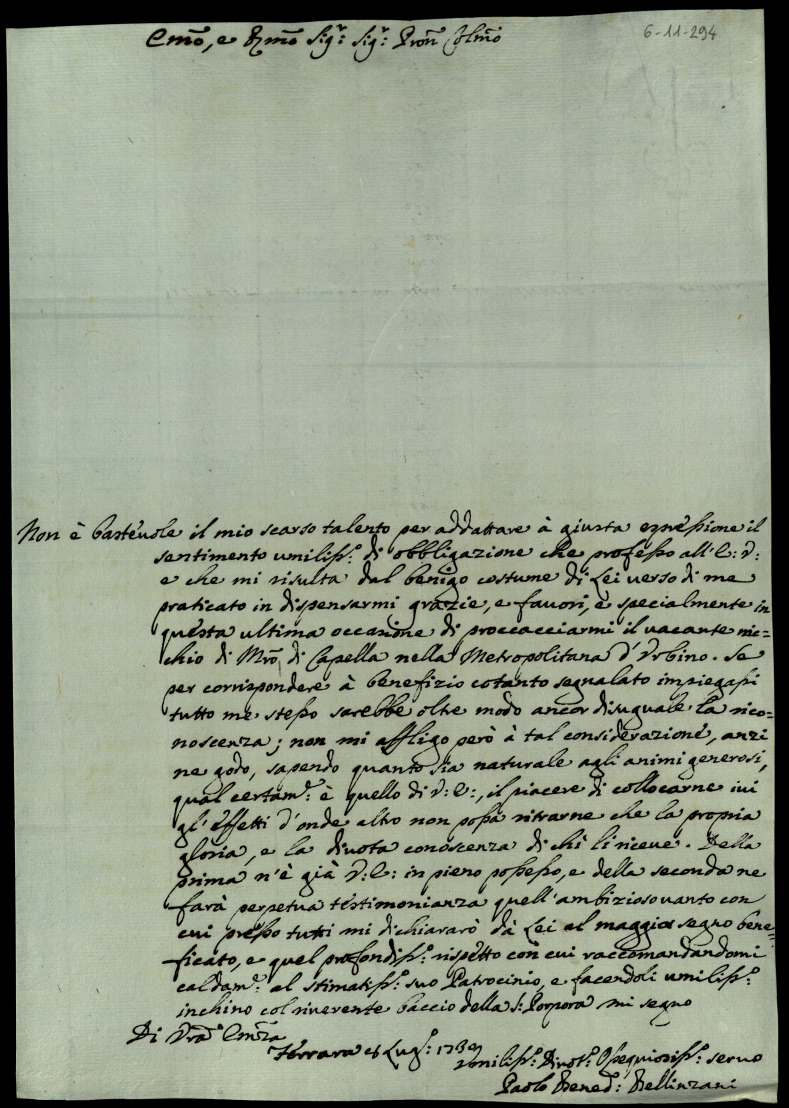 6-11-294
Emõ, e Rmõ Sig.r Sig.r Pron Colmõ
Non è bastévole il mio scarso talento per addattare à giusta espréssione il
sentimento umiliss.o di obbligazione che professo all'E: V:
e che mi risulta dal benigo costume di Lei verso di me
praticato in dispensarmi grazie, e favori, e specialmente in
questa ultima occasione di proccacciarmi il vacante nic=
chio di Mrõ di Capella nella Metropolitana d'Urbino. Se
per corrispondere à benefizio cotanto segnalato impiegassi
tutto me stesso sarebbe oltre modo ancor disuguale la rico=
noscenza; non mi affligo però à tal considerazione, anzi
ne godo, sapendo quanto sia naturale agli animi generosi,
qual certam.e è quello di V: E:, il piacere di collocarne ivi
gl'effetti d'onde altro non possa ritrarne che la propria
gloria, e la divota conoscenza di chi li riceve. Della
prima n'è già V: E: in pieno possesso, e della seconda ne
farà perpetua testimonianza quell'ambizioso vanto con
cui presso tutti mi dichiararò dà Lei al maggior segno bene=
ficato, e quel profondiss.o rispetto con cui raccomandandomi
caldam.e al stimatiss.o suo Patrocinio, e facendoli umiliss.o
inchino col riverente baccio della S: Porpora mi segno
Di Vrã Emza
Ferrara Lug.o
Umiliss.o Divot.o Ossequiosiss.o servo
Paolo Bened.o Bellinzani